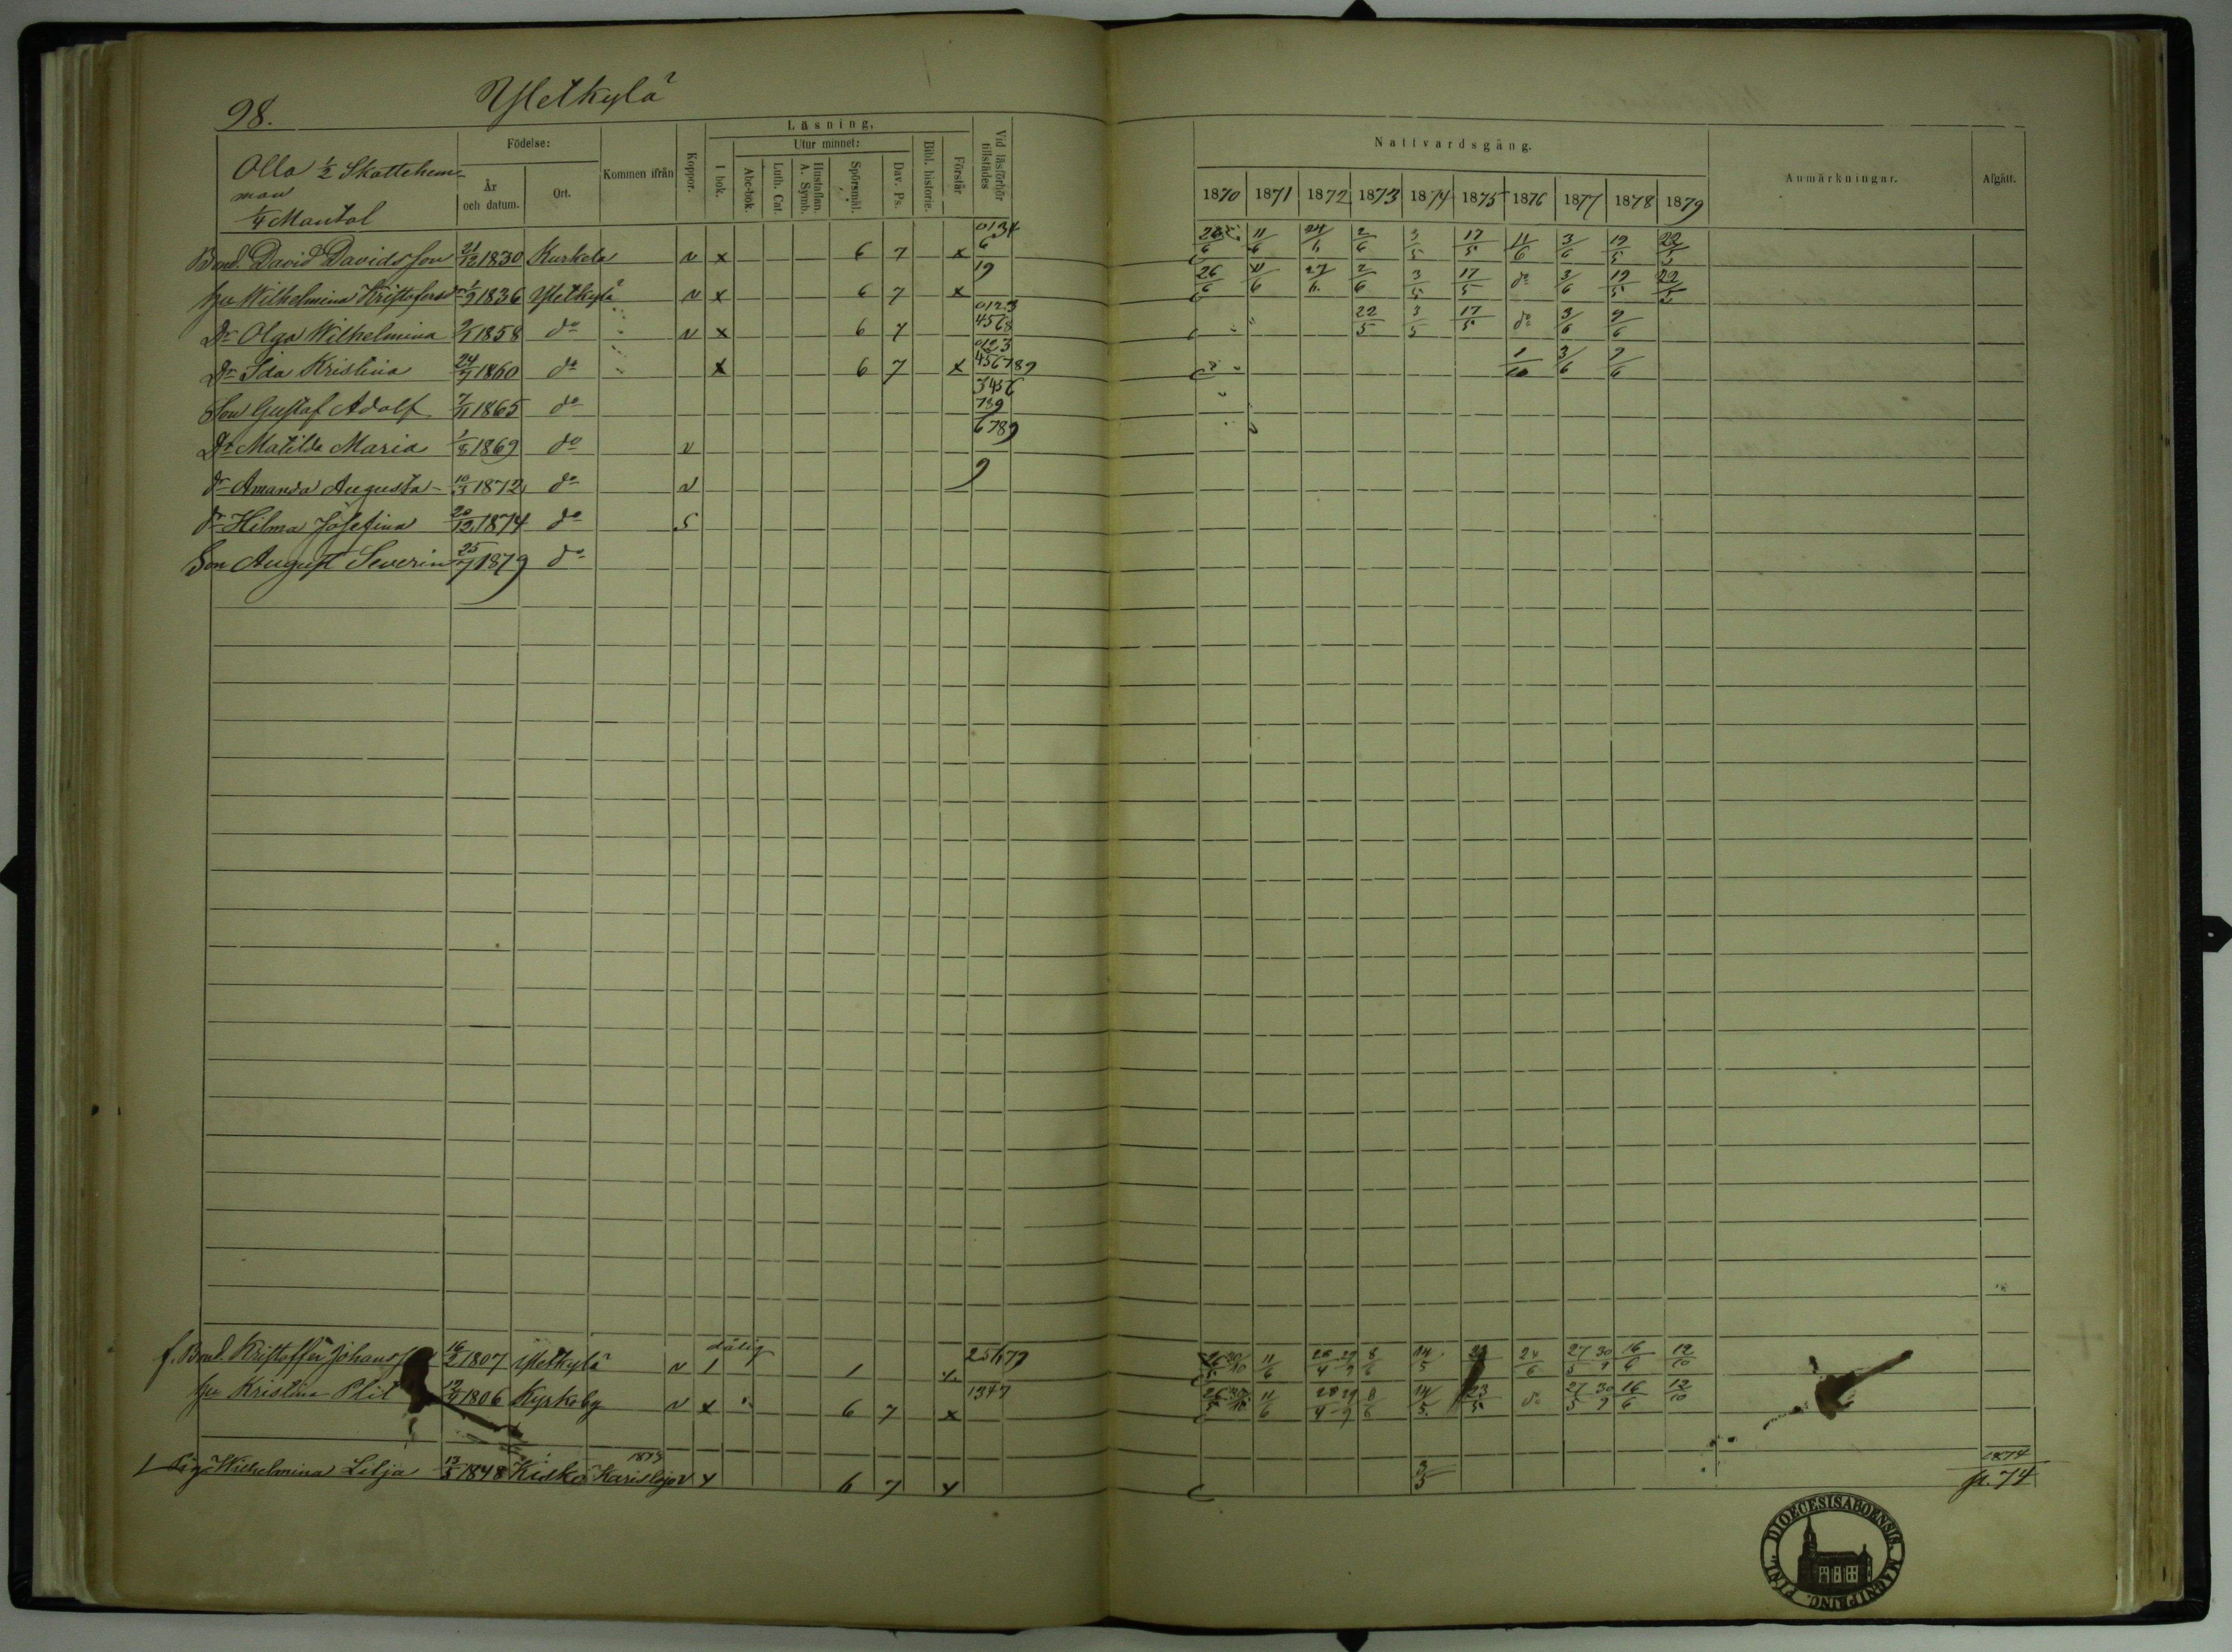 98. Yletkylä
Läsning.
Födelse: Kommen ifrån Koppor. I bok. Utur minnet: Bibl. historie. Förstår Vid läsförhör tillstädes
År och datum. Ort. Abc-bok. Luth. Cat. Hustaflan. A. Symb. Spörsmål. Dav. Ps.
Nattvardsgång. Anmärkningar. Afgått.
1870 1871 1872 1873 1874 1875 1876 1877 1878 1879
Olla 1/2 Skattehem=
man
1/4 Mantal
Bond. David Davidsson 21/12 1830 Kurkela v x 6 7 x 0134 6 11/6 2/6 3/5 17/5 11/6 3/6 19/5 22/5
hu Wilhelmina Kristofersd 1/9 1836 Yletkylä v x 6 7 x 19 26/6 11/6 27/6 2/6 3/5 17/5 do 3/6 19/5 22/5
Dr Olga Wilhelmina 2/1 1858 do v x 6 7 0123 4568 22/5 3/5 17/5 do 3/6 9/6
Dr Ida Kristina 24/7 1860 do x 6 7 x 0123 456789 1/10 3/6 9/6
Son Gustaf Adolf 7/11 1865 do 3456 789
Dr Matilda Maria 1/8 1869 do v 6789
dr Amanda Augusta 10/3 1872 do v 9
dr Hilma Josefina 20/12 1874 do s
Son August Severin 25/7 1879 do
dålig
f. Bond. Kristoffer Johansson 16/2 1807 Yletkylä v 1 1 11/6 8/6 14/5 24/6 27/5 30/9 16/6 12/10
hu Kristina Plit 1806 Kyrkoby v x 6 7 x 1347 11/6 28/4 29/9 8/6 14/5 23/5 do 27/5 30/9 16/6 12/10
1873 1874
Pig. Wilhelmina Lilja 13/5 1848 Kisko Karislojo v x 6 7 x 3/5 p. 74
DIOECESIS ABOENSIS. MAGNI PRINC. FINL.